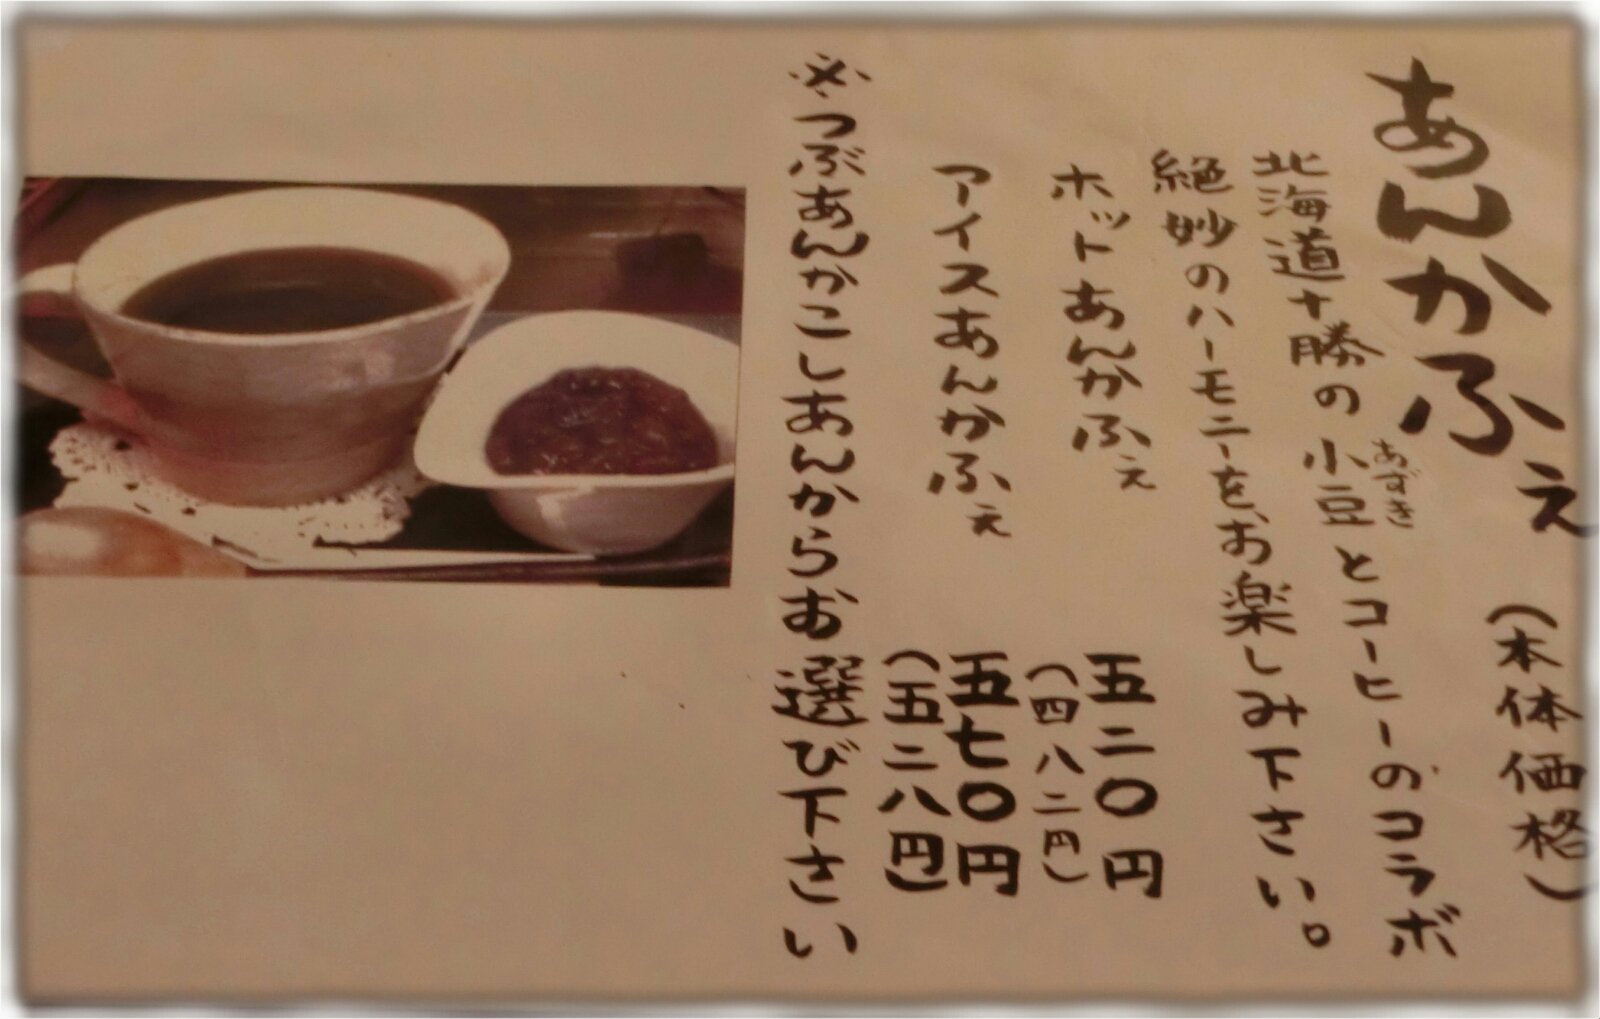 あんかふぇ(本体価格)
北海道十勝の小豆とコーヒーのコラボ
あずき
絶妙のハーモニーを、お楽しみ下さい。
ホットあんかふぇ 五二〇円
(四八二円)
アイスあんかふぇ 五七〇円
(五二八円)
※つぶあんかこしあんからお選び下さい